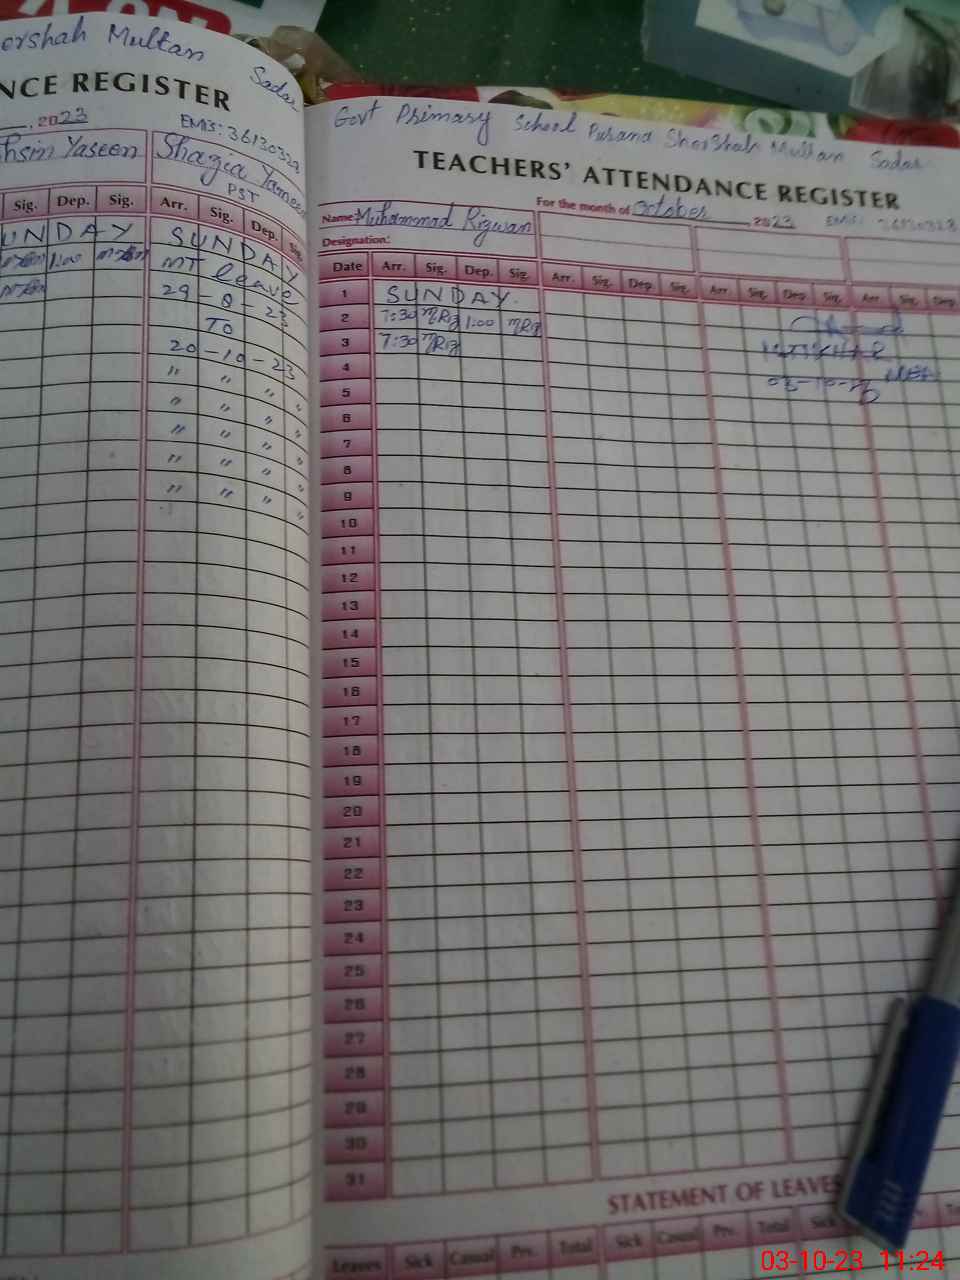 ershah Multan
Sadar
NCE REGISTER
, 2023
EMIS: 36130328
hsin Yaseen
Shazia Yameen
PST
Sig. Dep. Sig. Arr. Sig. Dep. Sig.
UNDAY SUNDAY
1:00 MT leave
29-8-23
TO
20-10-23
" " " "
" " " "
" " " "
" " " "
" " " "
Govt Primary School Purana SherShah Multan Sadar
TEACHERS' ATTENDANCE REGISTER
For the month of October, 2023 EMIS: 36130328
Name: Muhammad Rizwan
Designation:
Date Arr. Sig. Dep. Sig. Arr. Sig. Dep. Sig. Arr. Sig. Dep. Sig. Arr. Sig. Dep.
1 SUNDAY.
2 7:30 MRiz 1:00 MRiz
3 7:30 MRiz
4
5 03-10-23
6
7
8
9
10
11
12
13
14
15
16
17
18
19
20
21
22
23
24
25
26
27
28
29
30
31
STATEMENT OF LEAVES
Leaves Sick Casual Prv. Total Sick Casual Prv. Total Sick
03-10-23 11:24